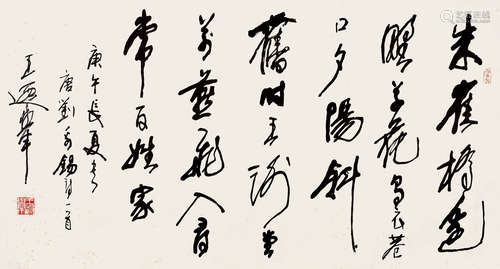 朱雀橋邊
野草花烏衣巷
口夕陽斜
舊時王謝堂
前燕飛入尋
常百姓家
庚午長夏書
唐劉禹錫詩一首
王遐舉